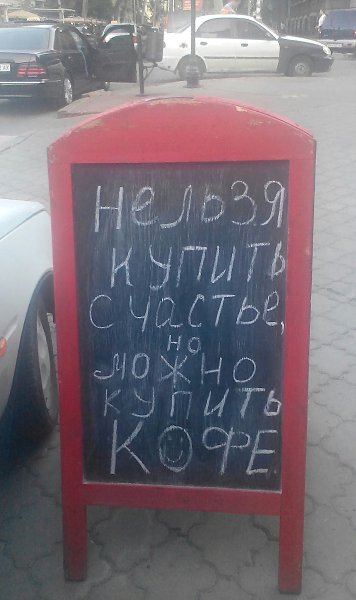 нельзя
купить
счастье,
но
можно
купить
КОФЕ.